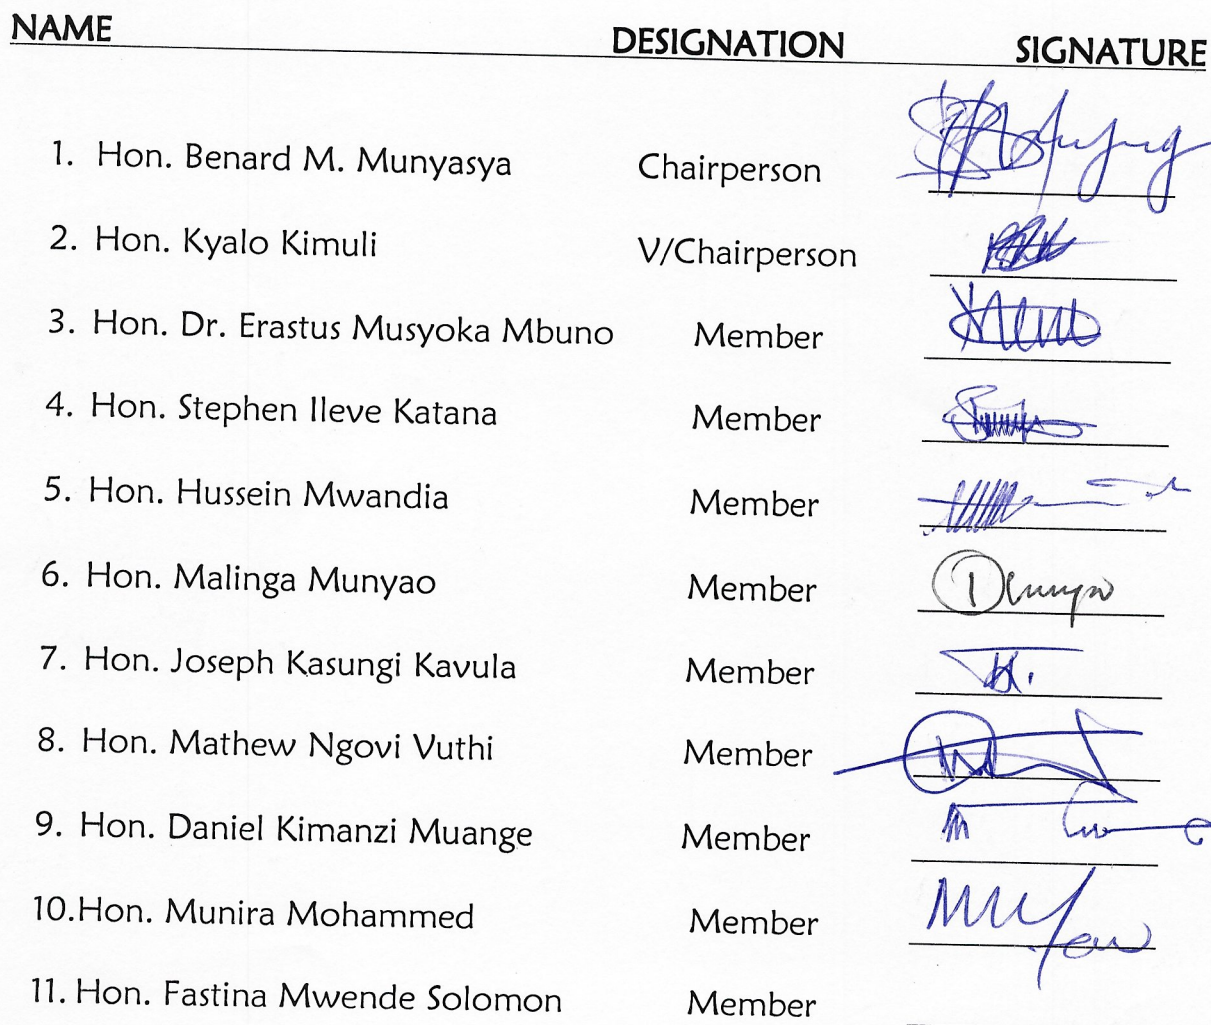 NAME DESIGNATION SIGNATURE
1. Hon. Benard M. Munyasya Chairperson
2. Hon. Kyalo Kimuli V/Chairperson
3. Hon. Dr. Erastus Musyoka Mbuno Member
4. Hon. Stephen Ileve Katana Member
5. Hon. Hussein Mwandia Member
6. Hon. Malinga Munyao Member
7. Hon. Joseph Kasungi Kavula Member
8. Hon. Mathew Ngovi Vuthi Member
9. Hon. Daniel Kimanzi Muange Member
10.Hon. Munira Mohammed Member
11. Hon. Fastina Mwende Solomon Member